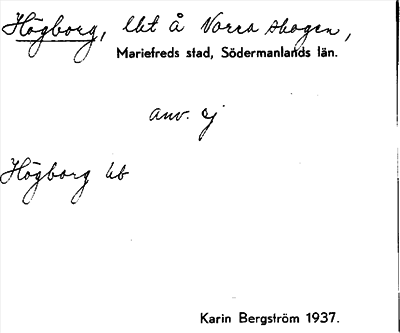 Högborg, lht å Norra skogen,
Mariefreds stad, Södermanlands län.
anv. ej
Högborg kb
Karin Bergström 1937.